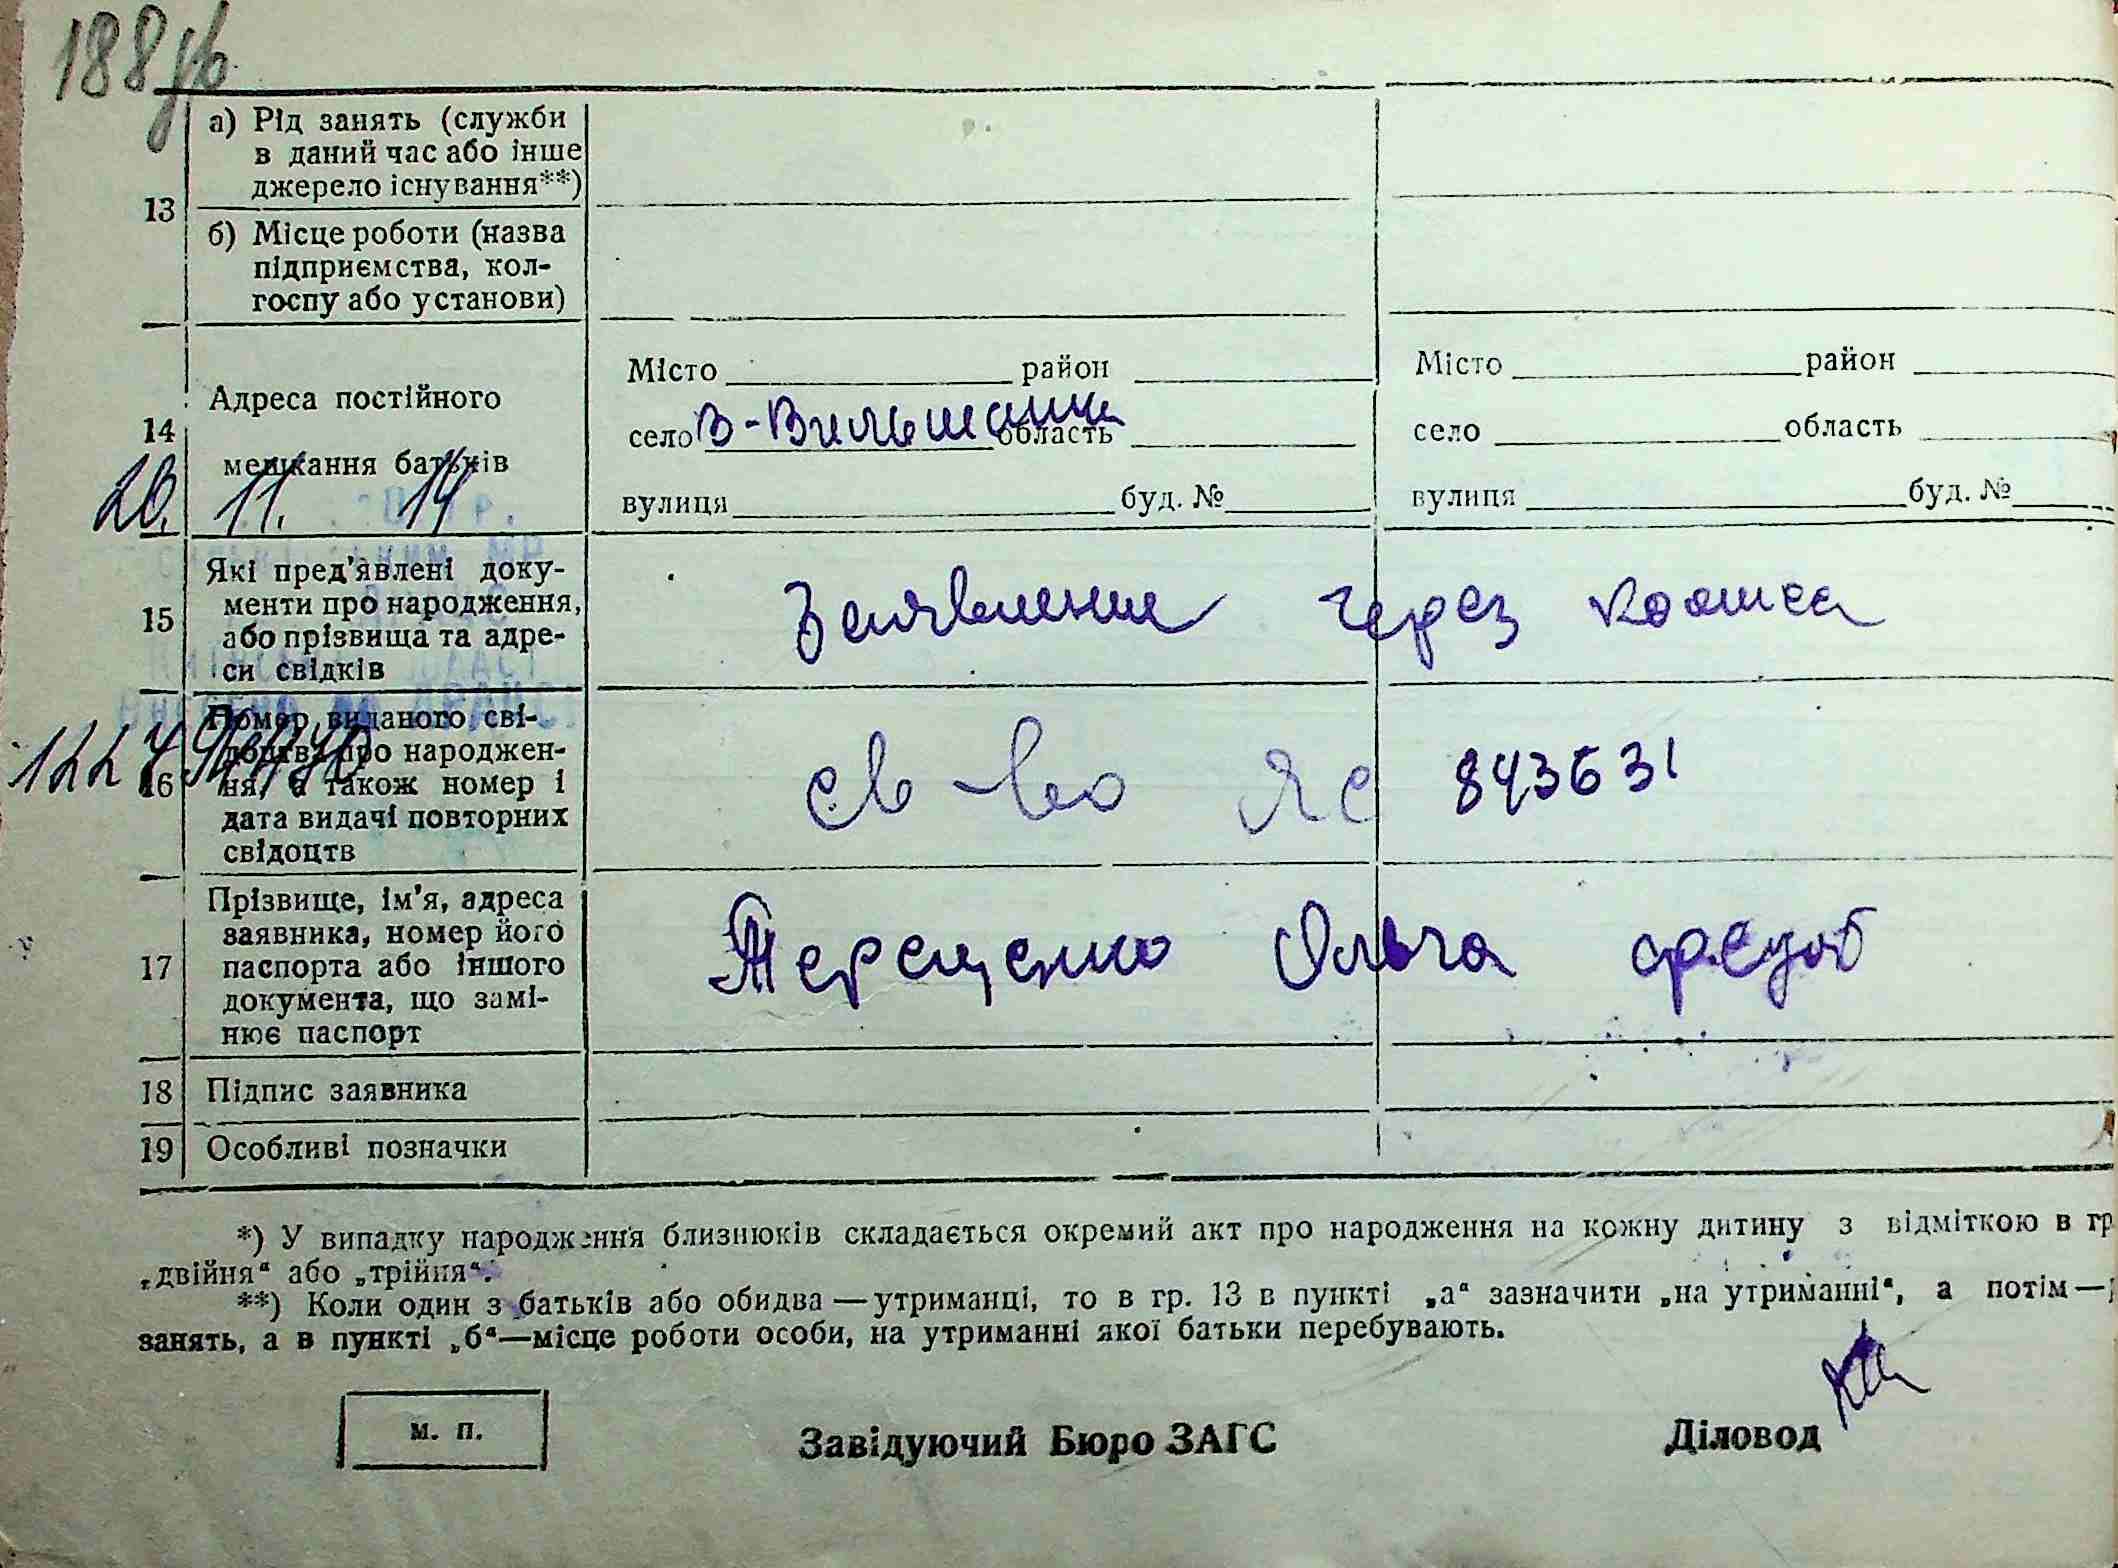 188
а) Рід занять (служби
в даний час або інше
джерело існування**)
13
б) Місце роботи (назва
підприємства, кол-
госпу або установи)
14
Адреса постійного
мешкання батьків
Місто район
село В-Вильшанка область
вулиця буд. №
Місто район
село область
вулиця буд. №
20. 11. 14
15
Які пред'явлені доку-
менти про народження,
або прізвища та адре-
си свідків
Заявление через
16
Номер виданого сві-
доцтва про народжен-
ня, а також номер і
дата видачі повторних
свідоцтв
св-во ЯС 843631
17
Прізвище, ім'я, адреса
заявника, номер його
паспорта або іншого
документа, що замі-
нює паспорт
Терещенко Ольга
18 Підпис заявника
19 Особливі позначки
*) У випадку народження близнюків складається окремий акт про народження на кожну дитину з відміткою в гр
„двійня“ або „трійня“.
**) Коли один з батьків або обидва—утриманці, то в гр. 13 в пункті „а“ зазначити „на утриманні“, а потім—
занять, а в пункті „б“—місце роботи особи, на утриманні якої батьки перебувають.
м. п.
Завідуючий Бюро ЗАГС
Діловод